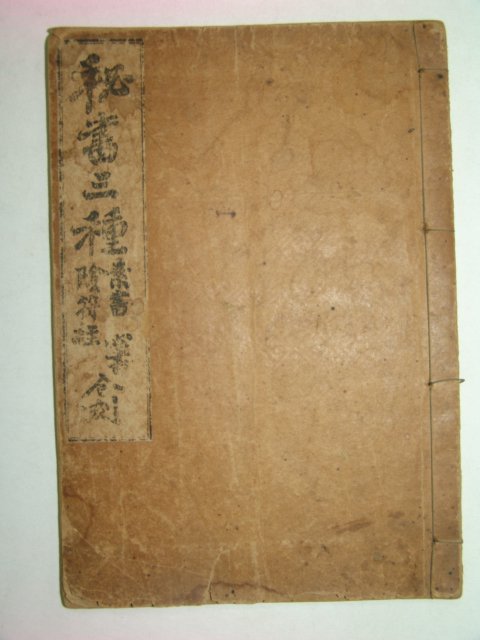 秘書三種
素書
陰符經
心書
合刻